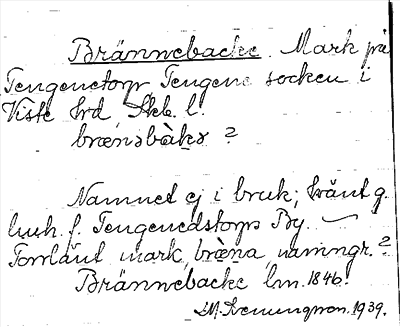 Brännebacke. Mark på
Tengenetorp, Tengene socken i
Viste hrd, Skb. l.
brænəbàkə ?
Namnet ej i bruk; känt g.
luh. f. Tengenedstorps By.
Torrlänt mark, bræna, namngr. ?
Brännebacke lm. 1846.
1939.